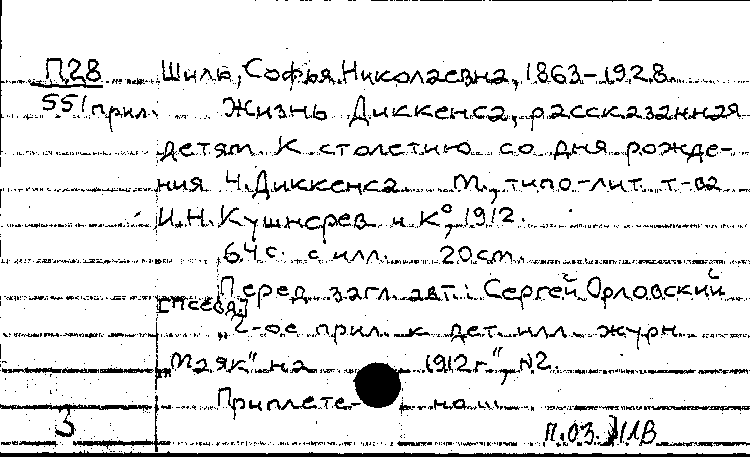 П28 Шиль, Софья Николаевна, 1863-1928.
551прил. Жизнь Диккенса, рассказанная
детям. К столетию со дня рожде-
ния Ч. Диккенса М., типо-лит. т-ва
И.Н. Кушнерев и К°, 1912.
64 с. с илл. 20 см.
Перед загл. авт.: Сергей Орловский
[псевд.]
„2-ое прил. к дет. илл. журн.
„Маяк" на 1912 г.", №2.
Приплете-
3